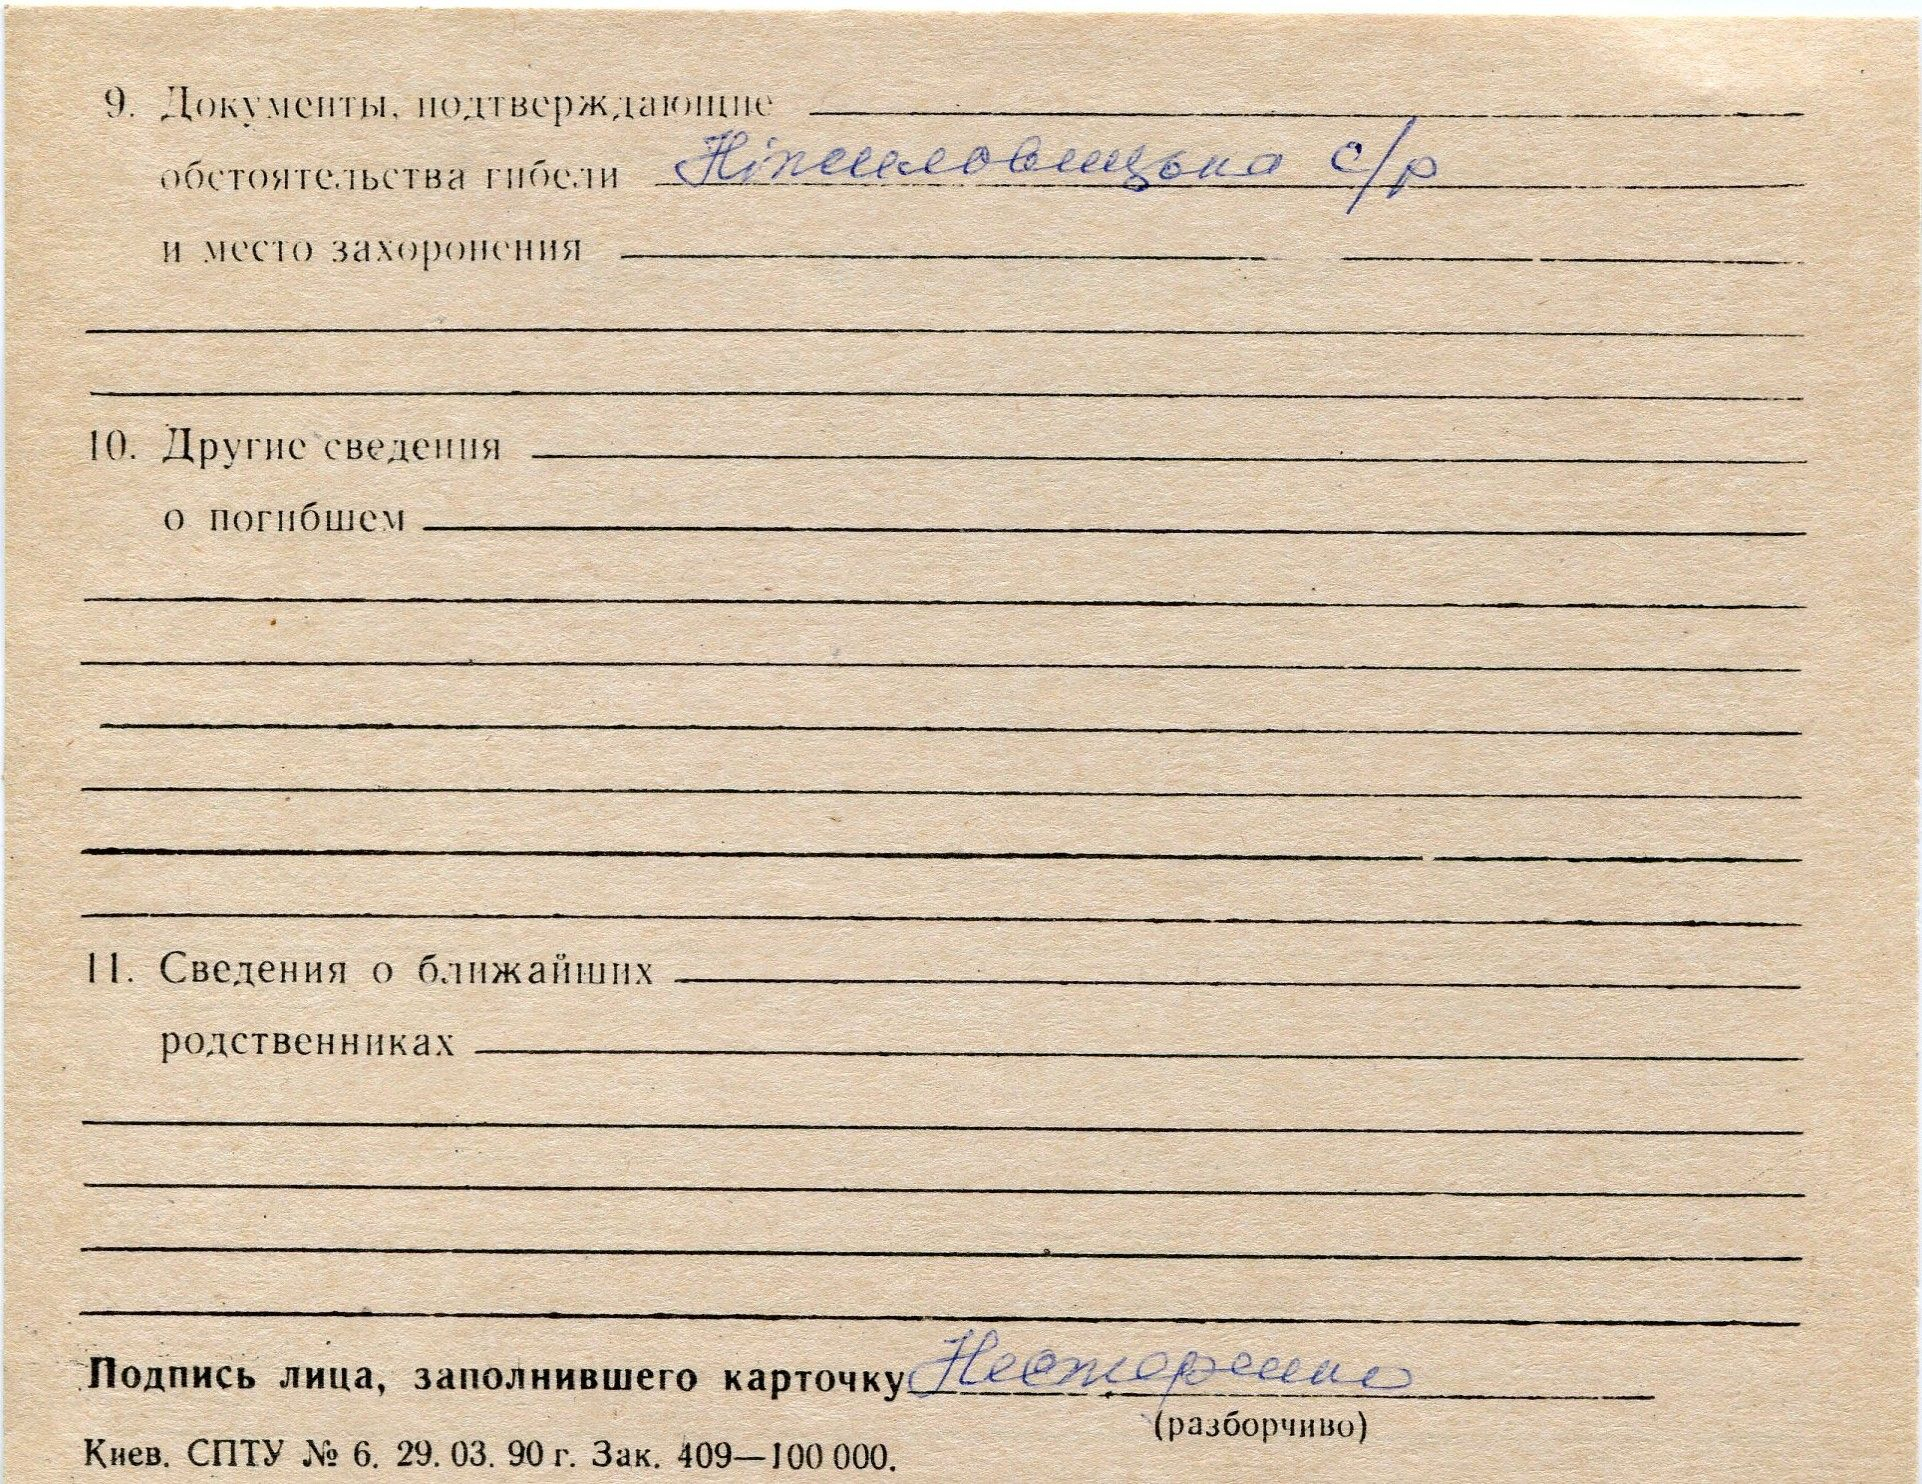 9. Документы, подтверждающие
обстоятельства гибели Ніпиловицька с/р
и место захоронения
10. Другие сведения
о погибшем
11. Сведения о ближайших
родственниках
Подпись лица, заполнившего карточку Нестеренко
(разборчиво)
Киев. СПТУ № 6. 29. 03. 90 г. Зак. 409—100 000.